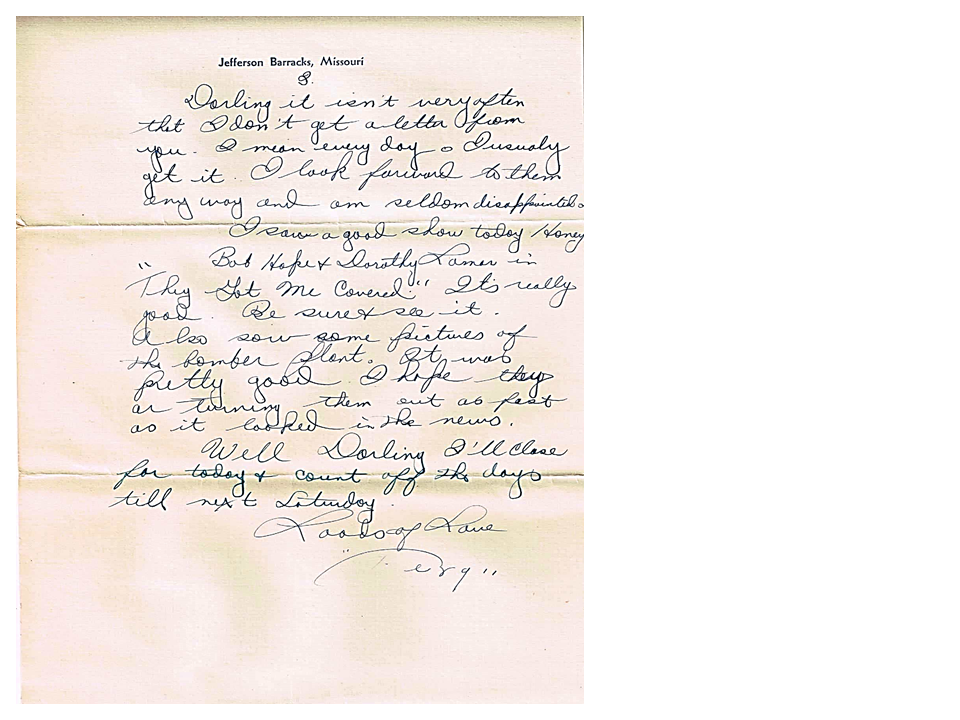 Jefferson Barracks, Missouri
8.
Darling it isn't very often
that I don't get a letter from
you. I mean every day. I usualy
get it. I look forward to them
any way and am seldom disappointed.
I saw a good show today Honey
Bob Hope & Dorothy Lamar in
"They Got Me Covered." It's really
good. Be sure & see it.
Also saw some pictures of
the bomber plant. It was
pretty good. I hope they
ar turning them out as fast
as it looked in the news.
Well Darling I'll close
for today & count off the days
till next Saturday.
Loads of Love